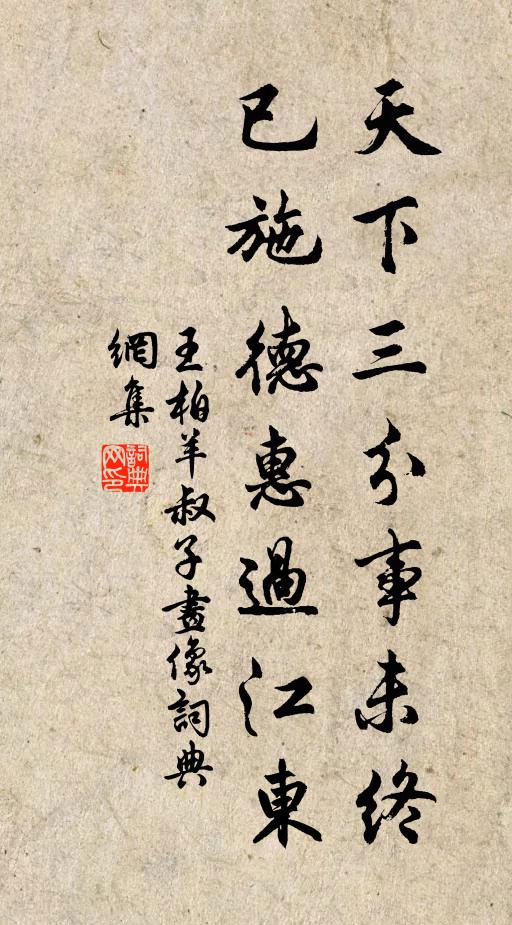 天下三分事未終
已施德惠過江東
王柏羊叔子畫像詞典
網集
詞典
网印